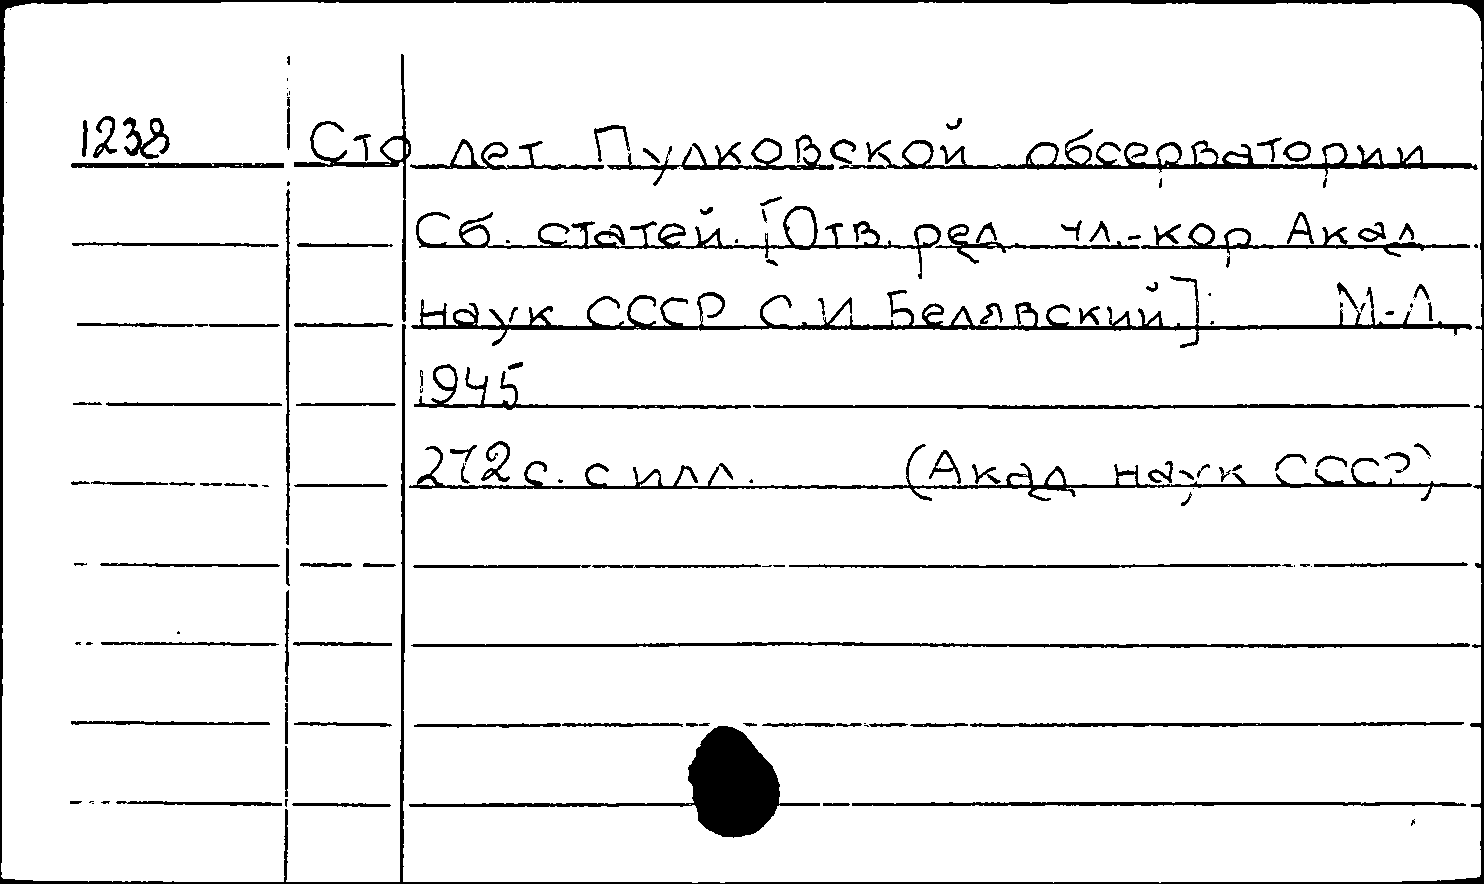 1238 Сто лет Пулковской обсерватории
Сб. статей. [Отв. ред. чл.-кор Акад
наук СССР С.И. Белявский.]. М.-Л.,
1945
272 с. с илл. (Акад наук СССР)